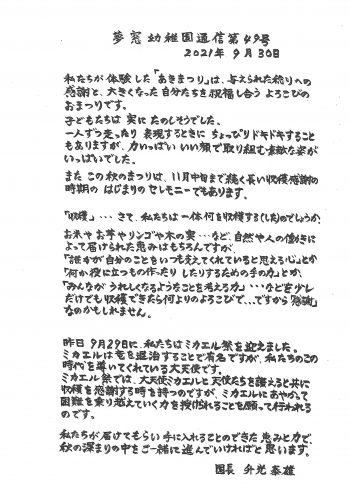 夢窓幼稚園通信第49号
2021年 9月30日
私たちが体験した「あきまつり」は、与えられた稔りへの
感謝と、大きくなった自分たちを祝福し合うよろこびの
おまつりです。
子どもたちは実にたのしそうでした。
一人ずつ走ったり表現するときにちょっぴりドキドキすること
もありますが、力いっぱいいい顔で取り組む素敵な姿が
いっぱいでした。
またこの秋のまつりは、11月中旬まで続く長い収穫感謝の
時期のはじまりのセレモニーでもあります。
「収穫」……さて、私たちは一体何を収穫する(した)のでしょうか
お米やお芋やリンゴや木の実…など、自然や人の働きに
よって届けられた恵みはもちろんですが、
「誰かが自分のことをいつも支えてくれていると思える心」とか
「何か役に立つもの作ったりしたりするための手の力」とか、
「みんながうれしくなるようなことを考える力」…などを少し
だけでも収穫できたら何よりのよろこびで…ですから「感謝」
なのかもしれません。
昨日9月29日に、私たちはミカエル祭を迎えました。
ミカエルは竜を退治することで有名ですが、私たちのこの
時代を導いてくれている大天使です。
ミカエル祭では、大天使ミカエルと天使たちを讃えると共に
収穫を感謝する時を持つのですが、ミカエルにあやかって
困難を乗り越えていく力を授けられることを願って行われる
のです。
私たちが届けてもらい手に入れることのできた恵みと力で、
秋の深まりの中をご一緒に進んでいければと思います。
園長 升光泰雄